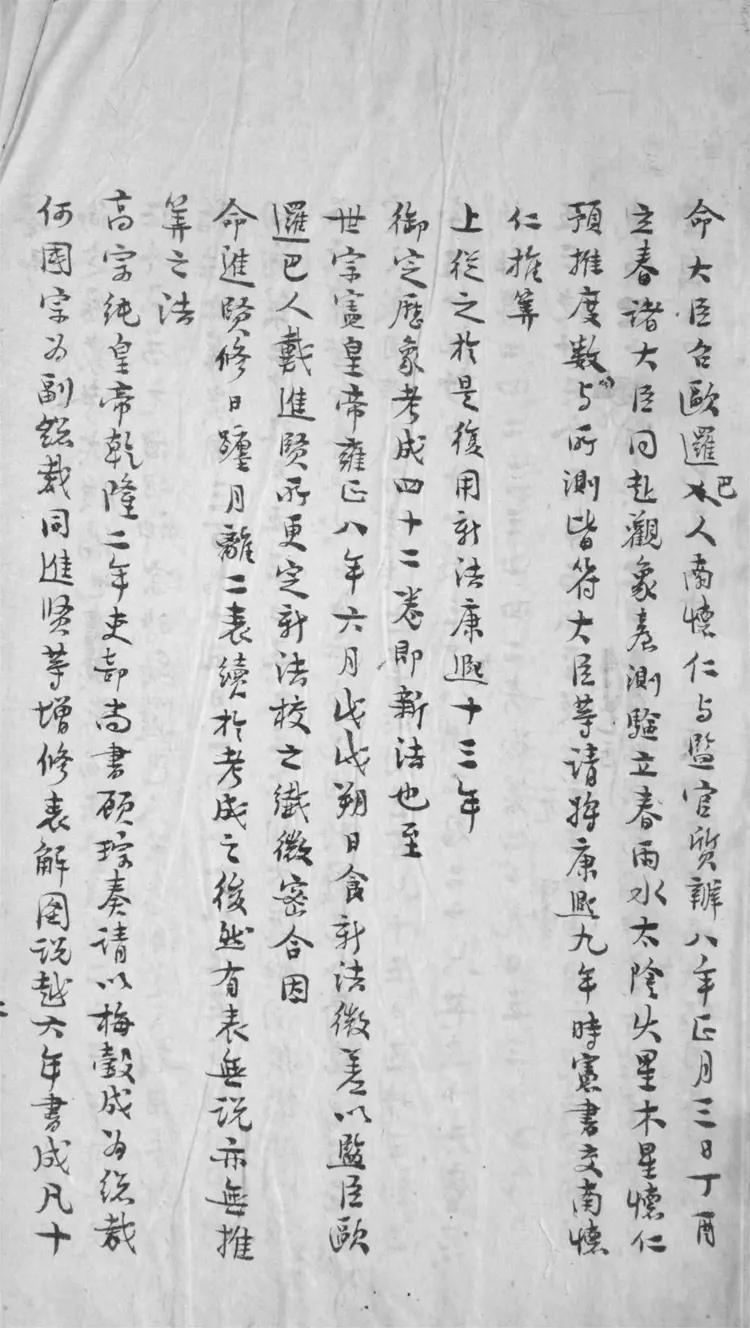 命大臣召歐邏巴人南懷仁与監官質辦八年正月三日丁酉
立春諸大臣同赴觀象臺測驗立春雨水太陰火星木星懷仁
預推度數与所測皆符大臣等請將康熙九年時憲書交南懷
仁推算
上從之於是復用新法康熙十三年
御定歷象考成四十二卷即新法也至
世宗憲皇帝雍正八年六月戊戌朔日食新法微差以監臣歐
邏巴人戴進賢所更定新法校之纖微密合因
命進賢修日躔月離二表續於考成之後然有表無說亦無推
算之法
高宗純皇帝乾隆二年吏部尚書顧琮奏請以梅瑴成為總裁
何國宗为副總裁同進賢等增修表解圖說越六年書成凡十